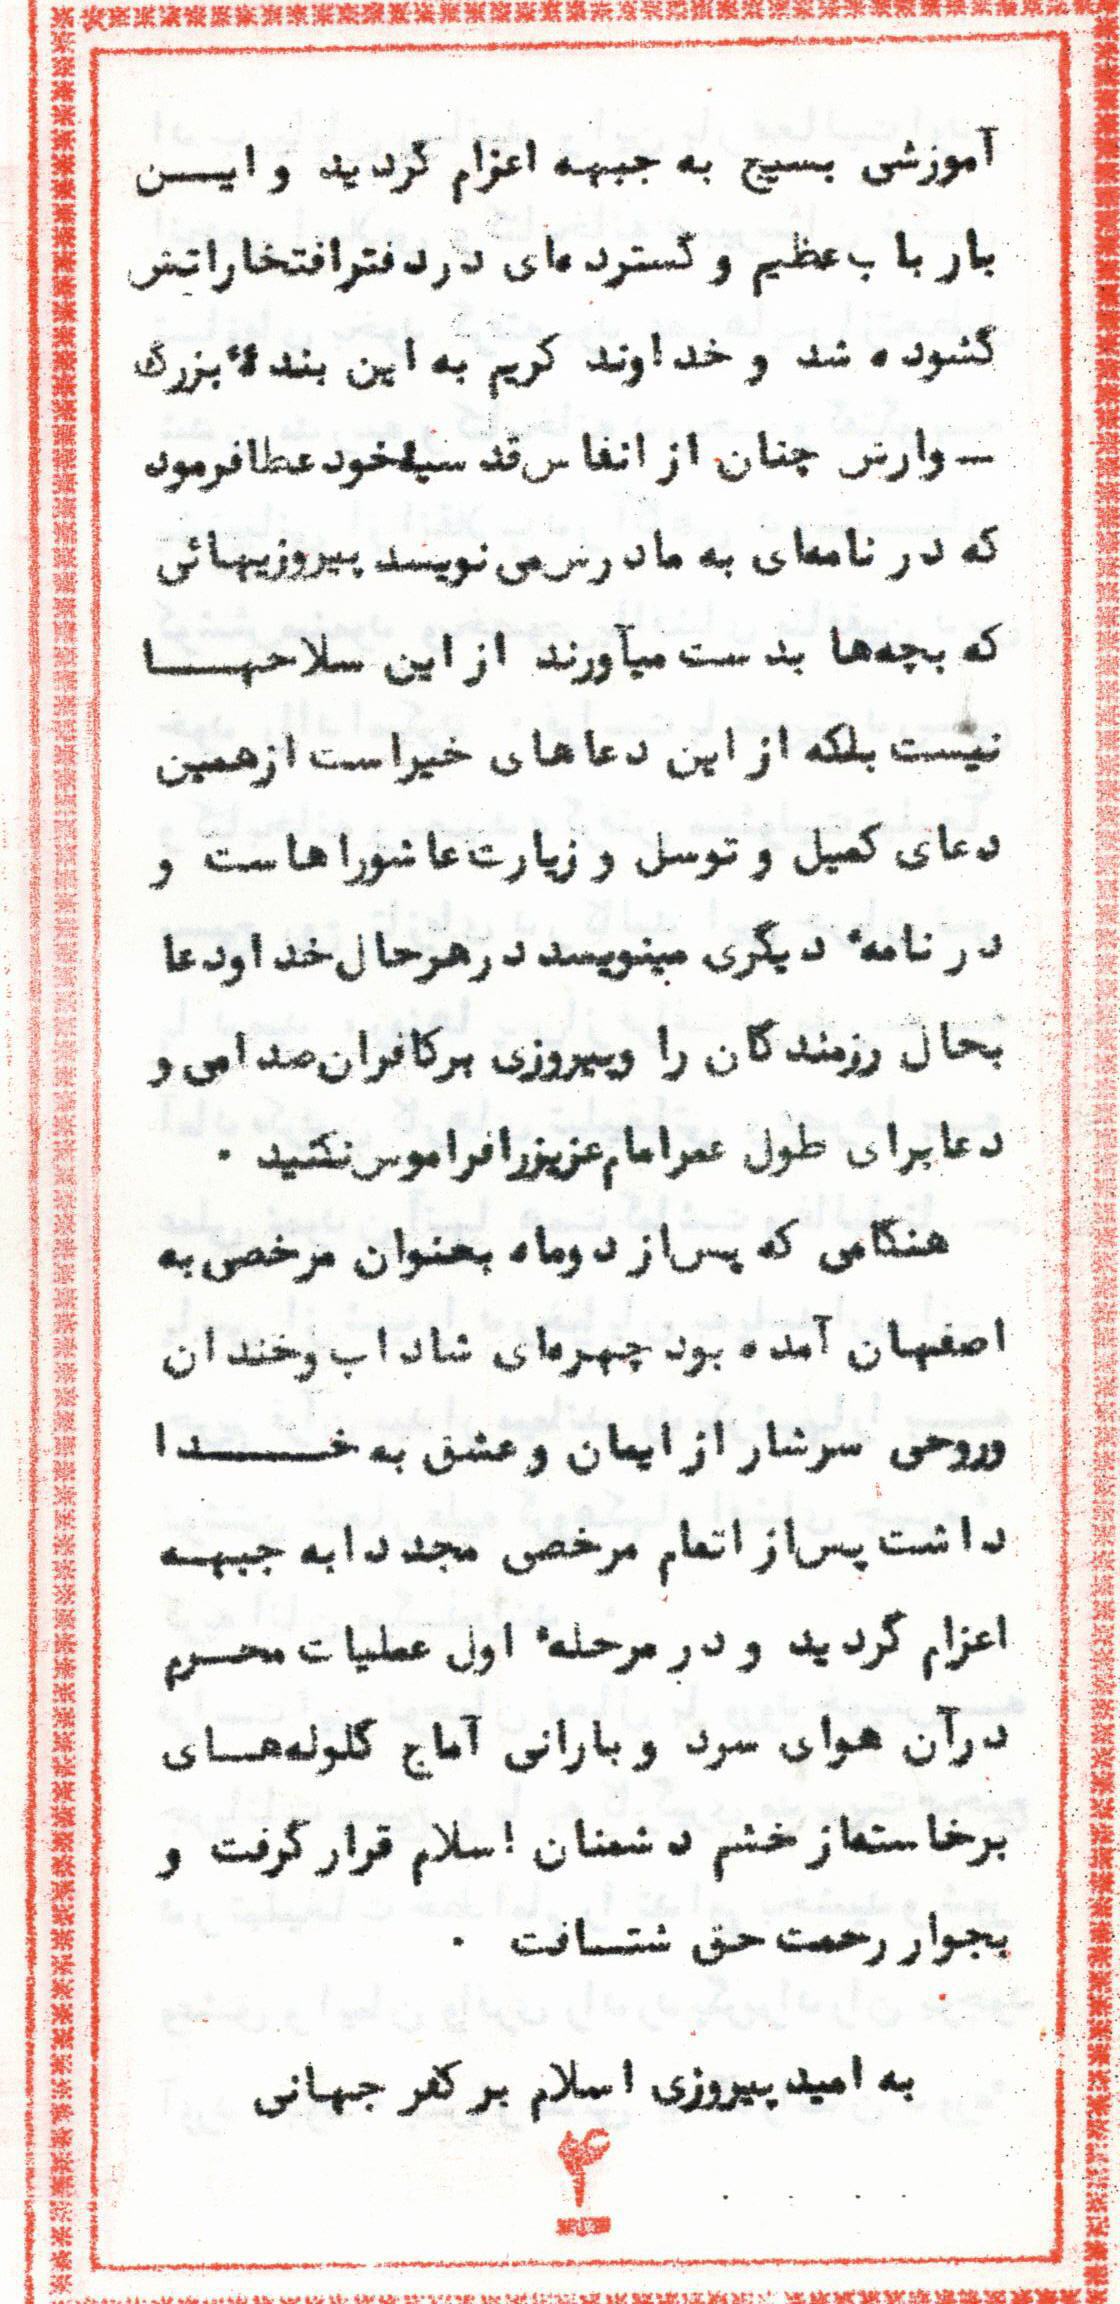 آموزشی بسیج به جبهه اعزام گردید و این
بار باب عظیم و گسترده‌ای در دفتر افتخاراتش
گشوده شد و خداوند کریم به این بندهٔ بزرگ
ـ وارش چنان از انفاس قدسیهٔ خود عطا فرمود
که در نامه‌ای به مادرش می نویسد پیروزیهائی
که بچه‌ها بدست میآورند از این سلاحها
نیست بلکه از این دعاهای خیر است از همین
دعای کمیل و توسل و زیارت عاشوراهاست و
در نامهٔ دیگری مینویسد در هر حال خدا و دعا
بحال رزمندگان را و پیروزی بر کافران صدامی و
دعا برای طول عمر امام عزیز را فراموش نکنید .
هنگامی که پس از دو ماه بعنوان مرخصی به
اصفهان آمده بود چهره‌ای شاداب و خندان
و روحی سرشار از ایمان و عشق به خدا
داشت پس از اتمام مرخصی مجددا به جبهه
اعزام گردید و در مرحلهٔ اول عملیات محرم
در آن هوای سرد و بارانی آماج گلوله‌های
برخاسته از خشم دشمنان اسلام قرار گرفت و
بجوار رحمت حق شتافت .
به امید پیروزی اسلام بر کفر جهانی
۴